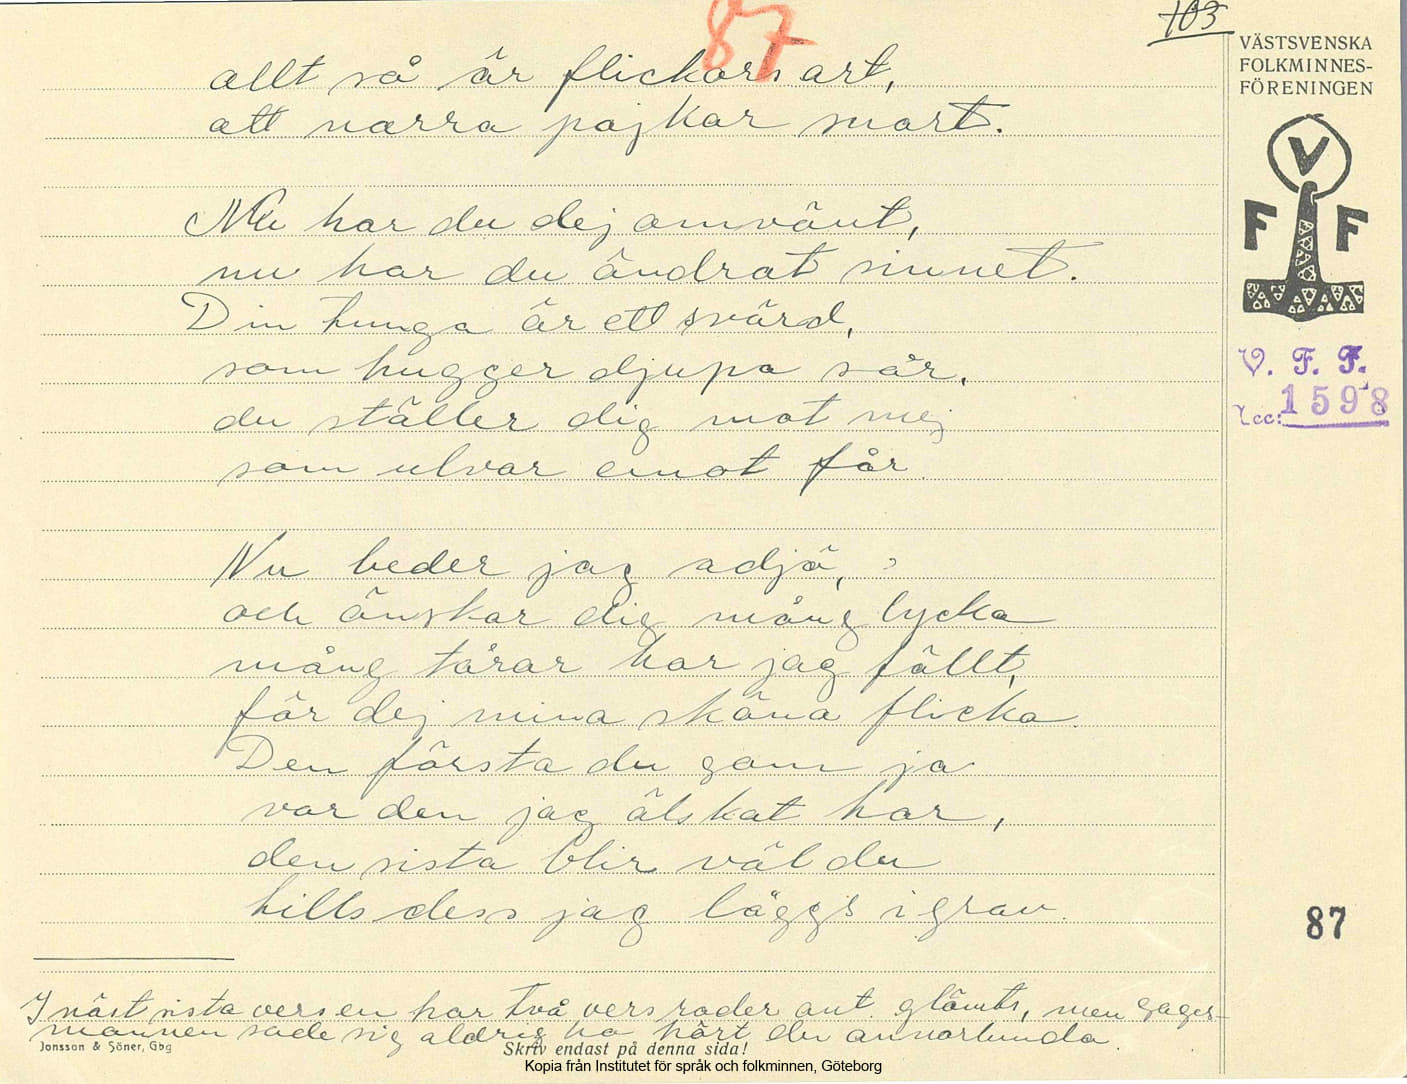 103
87
VÄSTSVENSKA
FOLKMINNES-
FÖRENINGEN
V
F F
V. F. F.
Acc: 1598
allt så är flickors art,
att narra pojkar snart.
Nu har du dej omvänt,
nu har du ändrat sinnet.
Din tunga är ett svärd,
som hugger djupa sår.
du ställer dig mot mej
som ulvar emot får.
Nu beder jag adjö,
och önskar dig mång lycka
mång tårar har jag fällt,
för dej mina sköna flicka.
Den första du som ja
var den jag älskat har,
den sista blir väl du
tills dess jag läggs i grav.
87
I näst sista versen har två versrader ant. glömts, men sages-
mannen sade sig aldrig ha hört den annorlunda.
Jonsson & Söner, Gbg
Skriv endast på denna sida!
Kopia från Institutet för språk och folkminnen, Göteborg